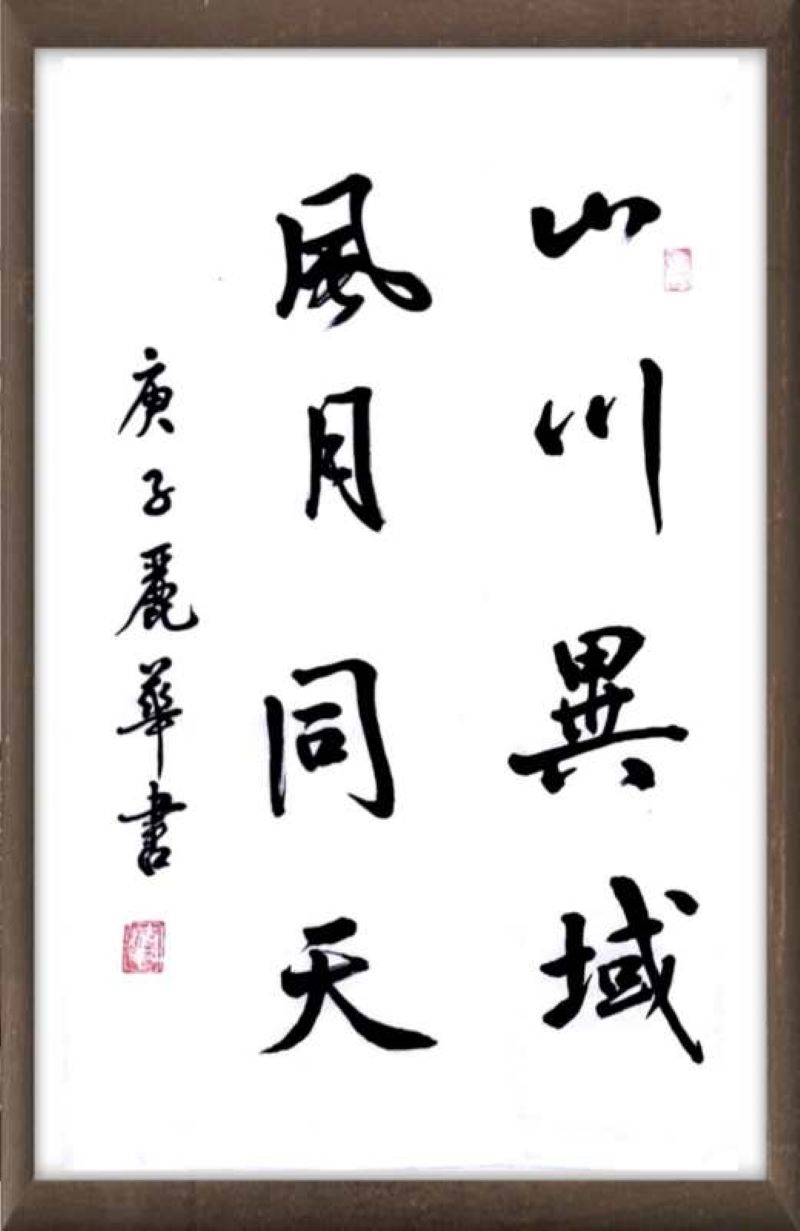 山川異域
風月同天
庚子麗華書